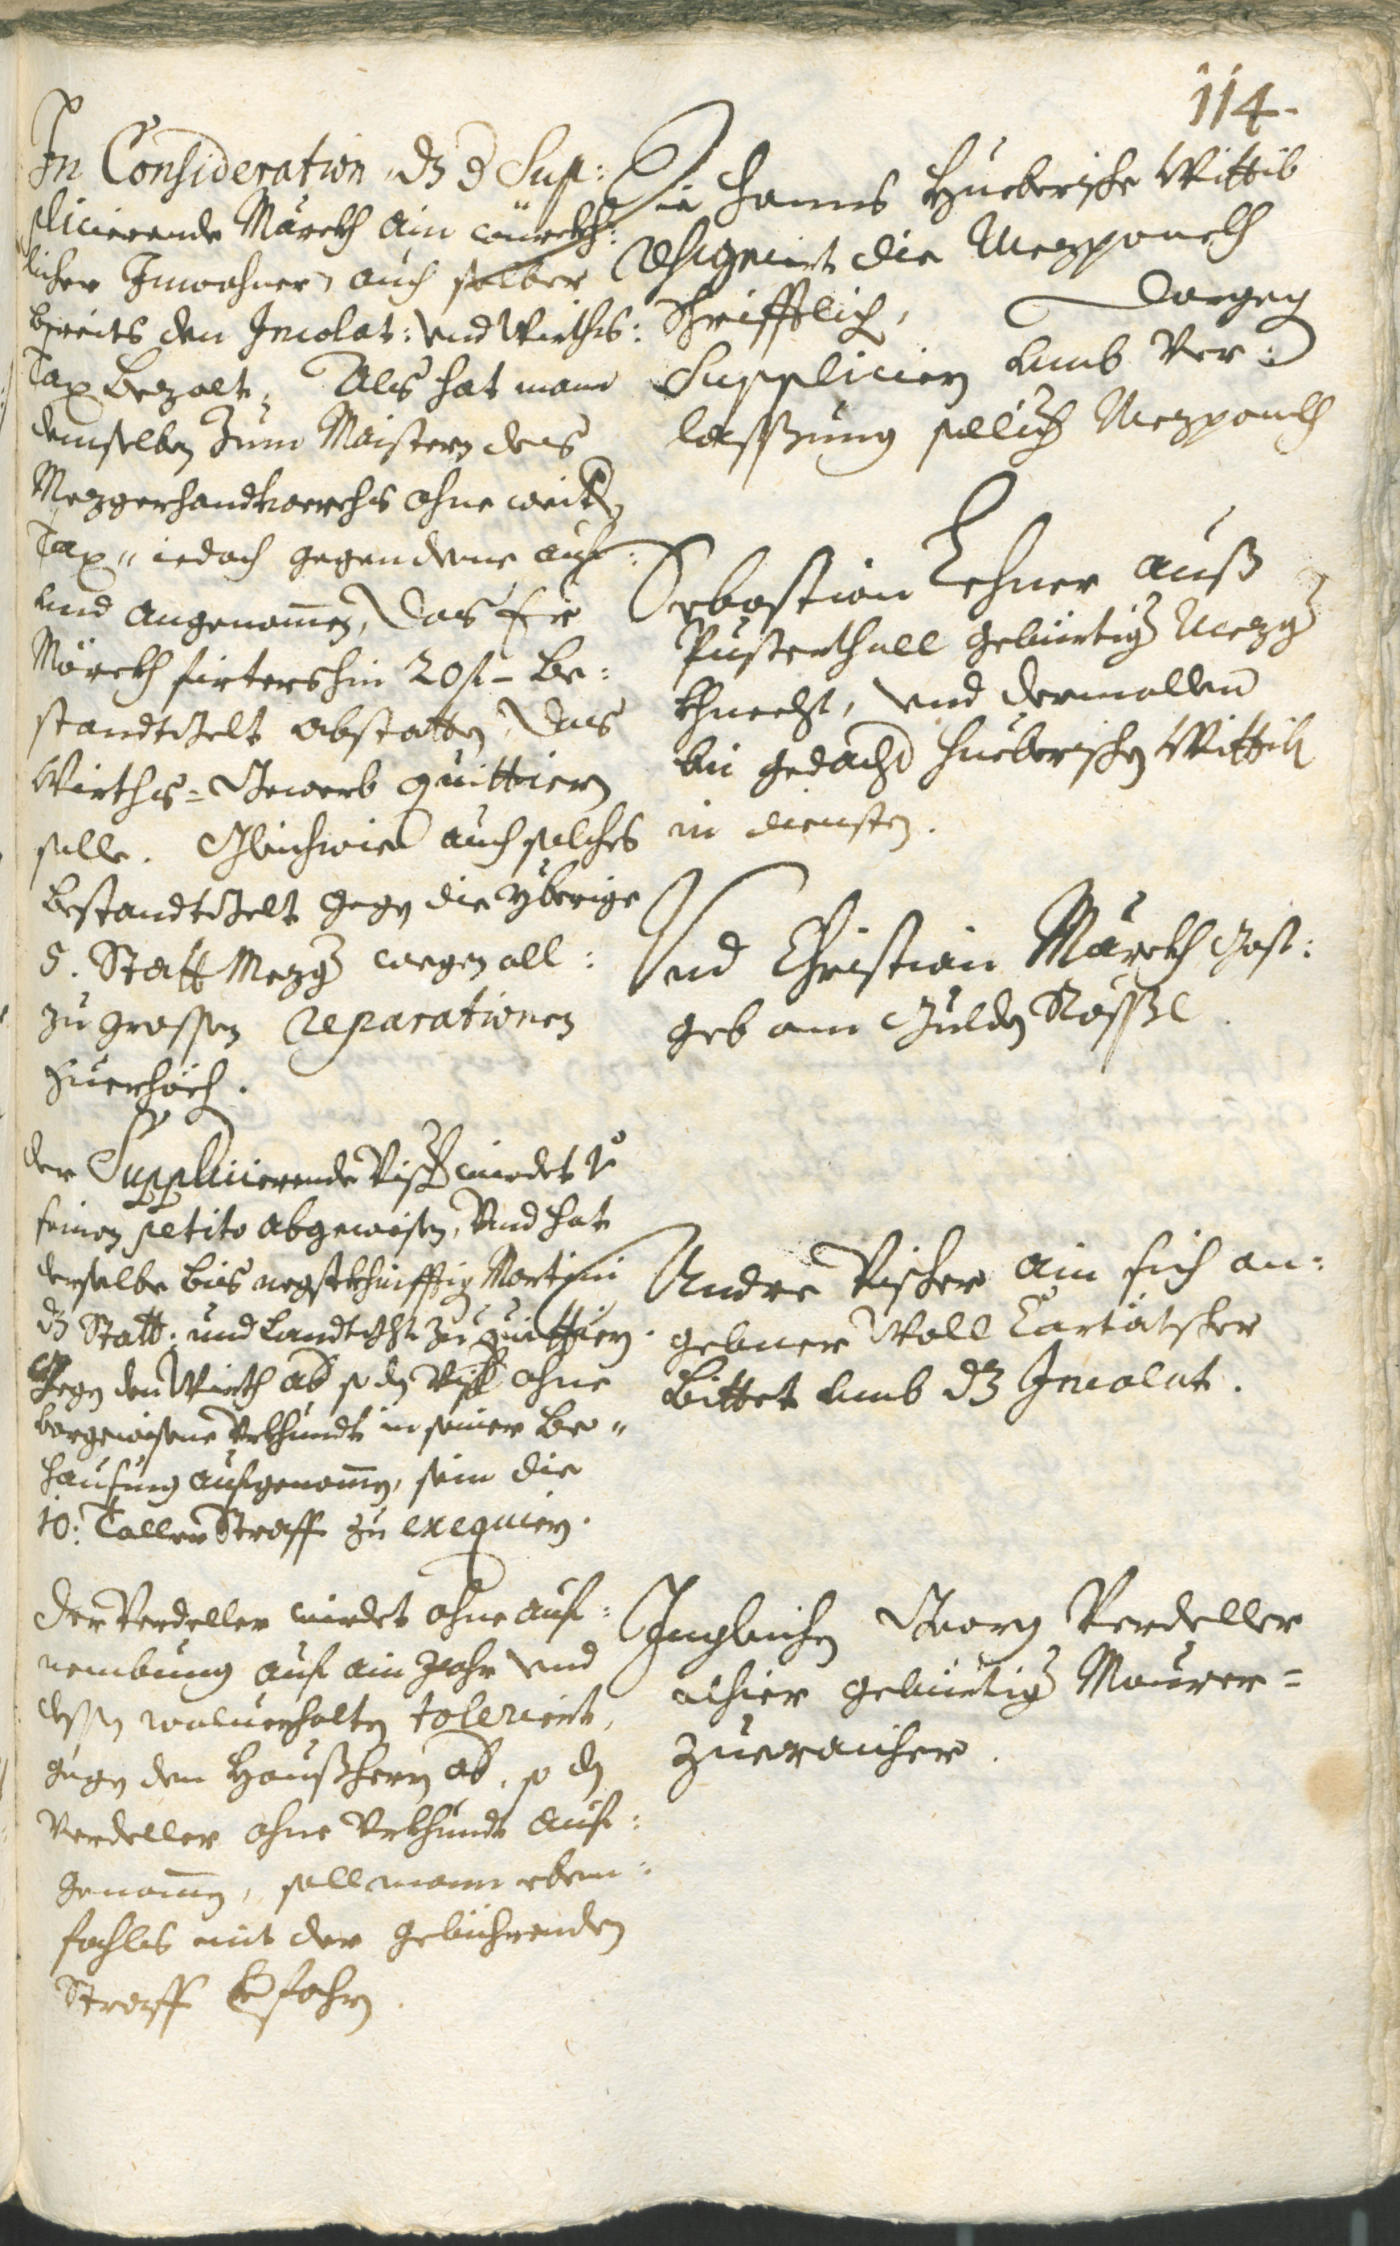 114.
In Consideration, dz d Sup:
plicierende Märckh ain würckh:
licher Inwohner, auch selber
bereits den Incolat: und Wirths:
Tax bezalt, Als hat mann
demselben zum Maistern des
Mezgerhandtwerchs ohne weitern
Tax, iedoch gegen deme auf:
und angenommen, das Er
Märckh firtershin 20 f - Be:
standtgelt abstatten, das
Wirths-Gewerb quittiern
solle. Gleichwie auch solches
Bestandtgelt gegen die yberige
5. Statt Mezger wegen all:
zu grossen reparationen
zuerhöch.
der Supplicierende Vischer wirdet vo
seinen petito abgewisen, Und hat
derselbe bis negstkhinfftig Martini
dz Statt: und Landtgericht zu quittiern.
Gegen den Wirth aber so den Vischer ohne
vorgewisene Urkhundt in seiner Be-
hausung aufgenommen, sein die
10: Taller Straff zu exequiern.
Der Verdeller wirdet ohne auf:
nembung auf ain Jahr und
dessen wolverhalten toleriert,
gegen dem Haußherrn aber, so den
Verdeller ohne Urkhundt auf:
genommen, soll mann eben:
fahls mit der gebührenden
Straff verfahrn.
Die Hanns Hueberische Wittib
resigniert die Mezgpanckh
Schrifftlich, Dargegen
Supplicieren umb Ver:
lassung sollicher Mezgpanckh
Sebastian Lechner auß
Pusterthall gebürtiger Mezger
Khnecht, und dermallen
bei gedachter Hueberischen Wittib
in diensten.
Und Christian Märckh Gast:
geb am Gulden Rössl.
Andre Vischer ain sich an:
gebner Woll Cartätscher
bittet umb dz Incolat.
Ingleichen Georg Verdeller
alhier gebürtiger Maurer-
zueraicher.